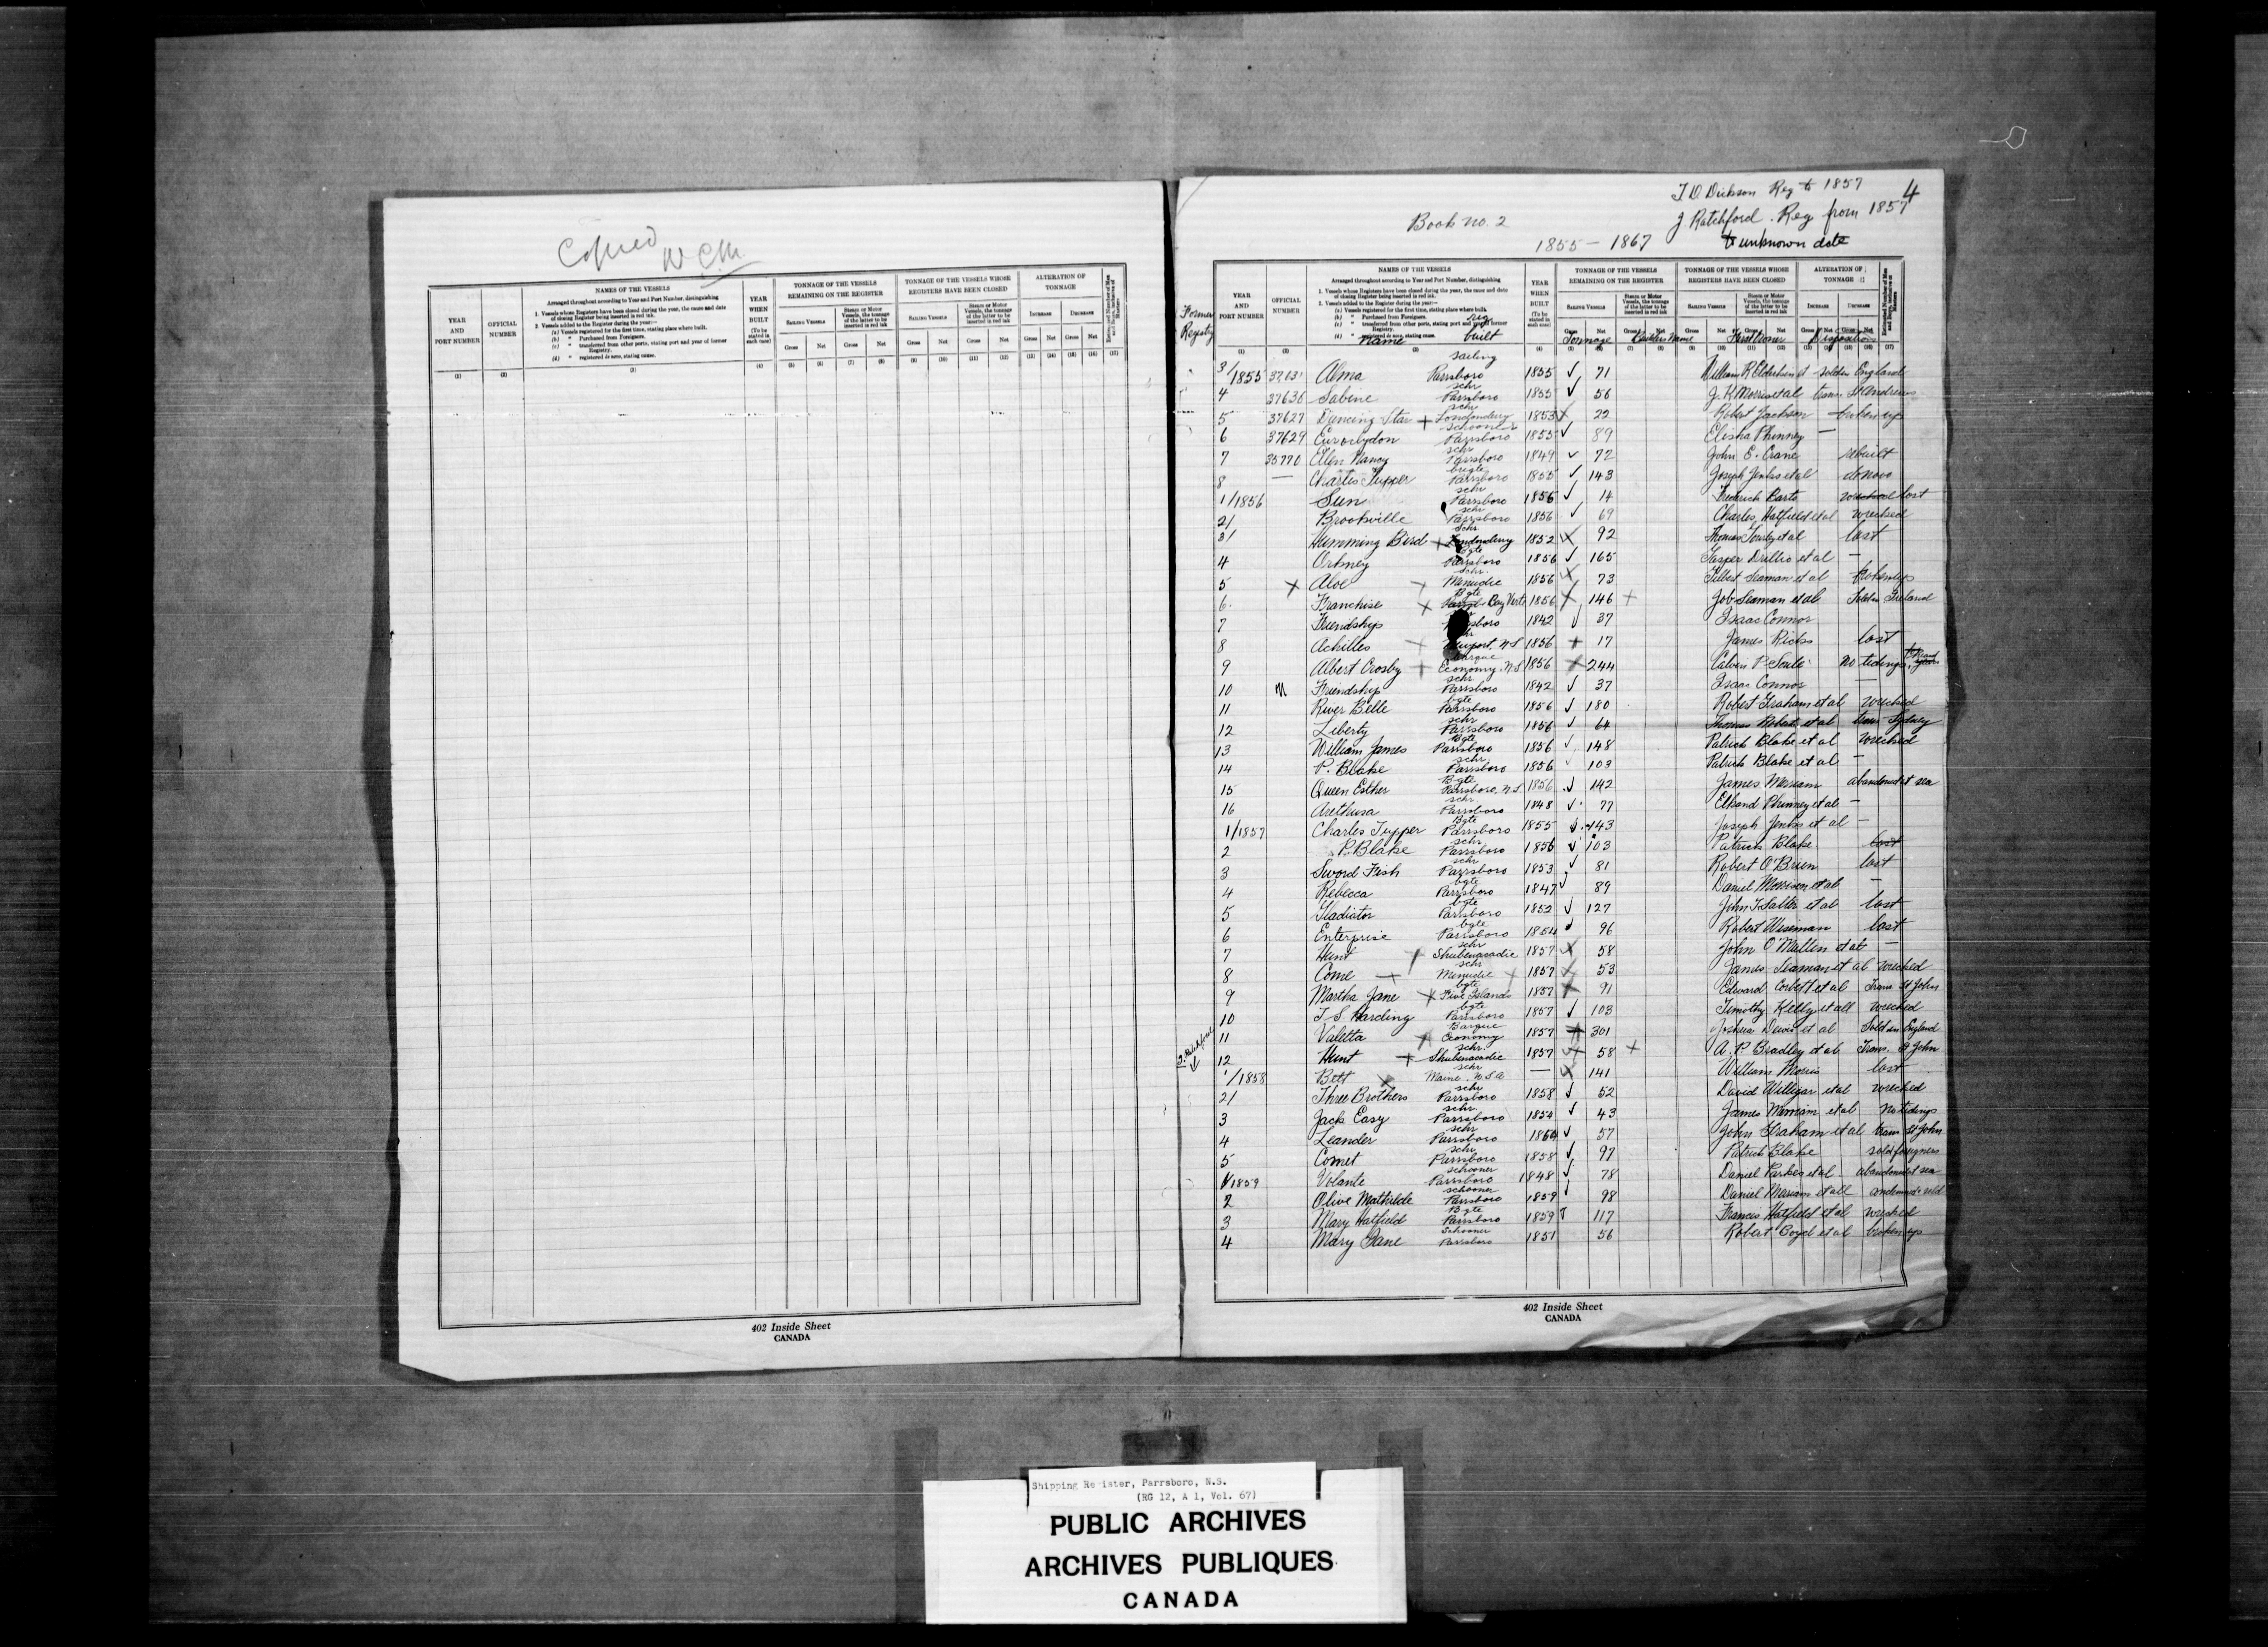 Copied
W C M
NAMES OF THE VESSELS
TONNAGE OF THE VESSELS REMAINING ON THE REGISTER
TONNAGE OF THE VESSELS WHOSE REGISTERS HAVE BEEN CLOSED
ALTERATION OF TONNAGE
YEAR AND PORT NUMBER
OFFICIAL NUMBER
YEAR WHEN BUILT
402 Inside Sheet
CANADA
T D Dickson Reg to 1857
4
J Ratchford . Reg from 1857
to unknown date
Book no. 2
1855 - 1867
Former Registry
NAMES OF THE VESSELS
TONNAGE OF THE VESSELS REMAINING ON THE REGISTER
TONNAGE OF THE VESSELS WHOSE REGISTERS HAVE BEEN CLOSED
ALTERATION OF TONNAGE
YEAR AND PORT NUMBER
OFFICIAL NUMBER
YEAR WHEN BUILT
name rig built Tonnage Builders Name First Owner Disposition
3/1855 Alma sailing Parrsboro 1855 71 sold in England
4 Sabine schr Parrsboro 1855 56 J. K. Morris et al trans. St Andrews
5 37627 Dancing Star schr Londonderry 1853 22 Robert Jackson broken up
6 37629 schooner Parrsboro 1855 89 Elisha Phinney —
7 35770 Ellen Nancy schr Parrsboro 1849 72 John E. Crane rebuilt
8 — Charles Tupper brigte Parrsboro 1855 143 Joseph Jenks et al de novo
1/1856 Sun schr Parrsboro 1856 14 Frederick lost
2/ Brookville schr Parrsboro 1856 69 Charles Hatfield et al wrecked
3/ Humming Bird schr Londonderry 1852 92 Thomas et al lost
4 Orkney bgte Parrsboro 1856 165 et al —
5 Aloe schr. Minudie 1856 73 Gilbert Seaman et al broken up
6. Franchise Bgte Bay Verte 1856 146 Job Seaman et al Sold in Ireland
7 Friendship Parrsboro 1842 37 Isaac Connor
8 Achilles Newport, N S 1856 17 James Ricks lost
9 Albert Crosby barque Economy, N S 1856 244 Calvin P. Soule no tidings
10 Friendship schr Parrsboro 1842 37 Isaac Connor —
11 River Belle bgte Parrsboro 1856 180 Robert Graham et al wrecked
12 Liberty schr Parrsboro 1856 64 Thomas et al trans Sydney
13 William James Bgte Parrsboro 1856 148 Patrick Blake et al wrecked
14 P. Blake schr Parrsboro 1856 103 Patrick Blake et al —
15 Queen Esther Bgte Parrsboro, N S 1856 142 James Merriam abandoned at sea
16 Arethusa schr Parrsboro 1848 77 Phinney et al —
1/1857 Charles Tupper Bgte Parrsboro 1855 143 Joseph Jenks et al —
2 P. Blake schr Parrsboro 1856 103 Patrick Blake lost
3 Sword Fish schr Parrsboro 1853 81 Robert O'Brien lost
4 Rebecca bgte Parrsboro 1847 89 Daniel Morrison et al —
5 Gladiator bgte Parrsboro 1852 127 John F Salter et al lost
6 Enterprise bgte Parrsboro 1854 96 Robert Wiseman lost
7 Hunt schr Shubenacadie 1857 58 John O'Mullin et al —
8 Come schr Minudie 1857 53 James Seaman et al wrecked
9 Martha Jane bgte Five Islands 1857 91 Edward Corbett et al Trans St John
10 T. S. Harding bgte Parrsboro 1857 103 Timothy Kelly et all wrecked
11 Valetta Barque Economy 1857 301 Joshua et al Sold in England
J. Ratchford
12 Hunt schr. Shubenacadie 1857 58 A. P. Bradley et al Trans. St John
1/1858 Bett schr Maine. U.S.A — 141 William Morris lost
2/ Three Brothers schr Parrsboro 1858 52 David Willigar et al wrecked
3 Jack Easy schr. Parrsboro 1854 43 James Merriam et al No tidings
4 Leander schr Parrsboro 57 John Graham et al trans St John
5 Comet schr. Parrsboro 1858 97 Patrick Blake sold foreigners
1/1859 Volante schooner Parrsboro 1848 78 Daniel Parkes et al abandoned at sea
2 Olive Mathilde schooner Parrsboro 1859 98 Daniel Merriam et all condemned & sold
3 Mary Hatfield Bgte Parrsboro 1859 117 Francis Hatfield et al wrecked
4 Mary Jane Schooner Parrsboro 1851 56 Robert Boyd et al broken up
402 Inside Sheet
CANADA
Shipping Register, Parrsboro, N.S.
(RG 12, A 1, Vol. 67)
PUBLIC ARCHIVES
ARCHIVES PUBLIQUES
CANADA